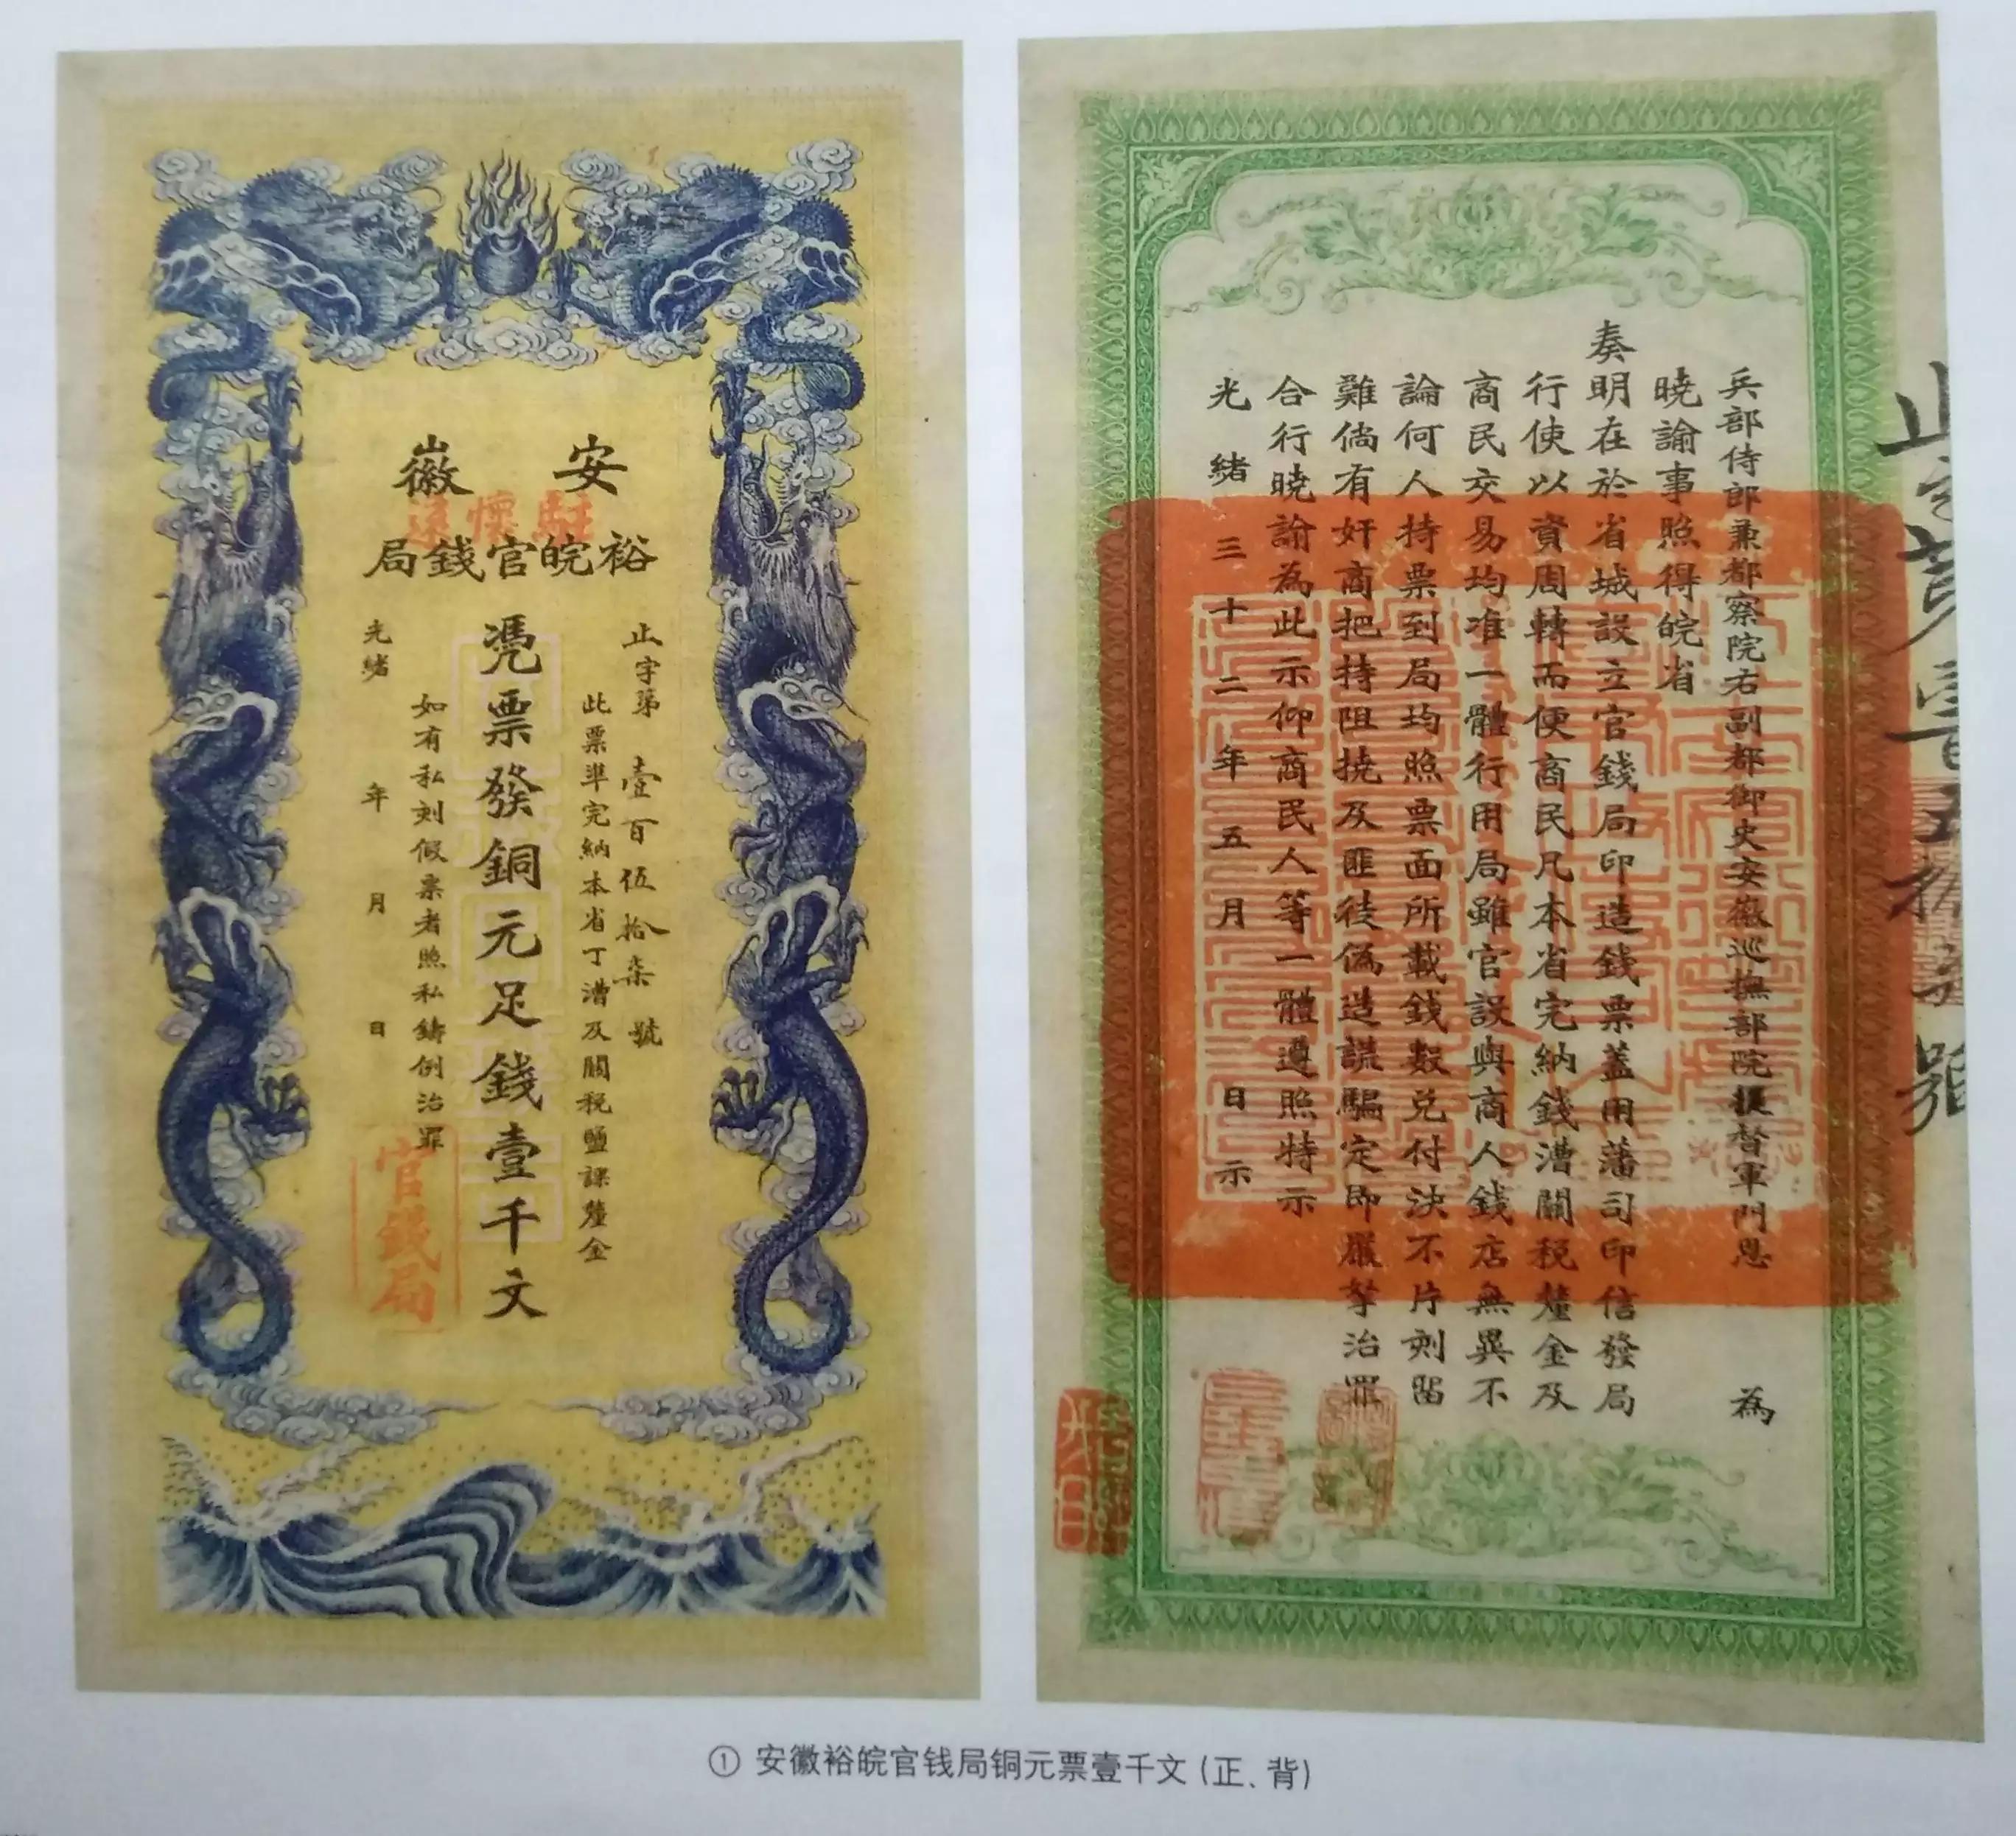 安徽
駐懷遠
裕皖官錢局
止字第壹百伍拾柒號
此票準完納本省丁漕及關稅鹽課釐金
憑票發銅元足錢壹千文
如有私刻假票者照私鑄例治罪
光緒 年 月 日
官錢局
兵部侍郎兼都察院右副都御史安徽巡撫部院提督軍門恩 為
曉諭事照得皖省
奏明在於省城設立官錢局印造錢票蓋用藩司印信發局
行使以資周轉而便商民凡本省完納錢漕關稅釐金及
商民交易均准一體行用局雖官設與商人錢店無異不
論何人持票到局均照票面所載錢數兌付決不片刻留
難倘有奸商把持阻撓及匪徒偽造誆騙定即嚴拏治罪
合行曉諭為此示仰商民人等一體遵照特示
光緒三十二年五月 日示
① 安徽裕皖官钱局铜元票壹千文(正、背)